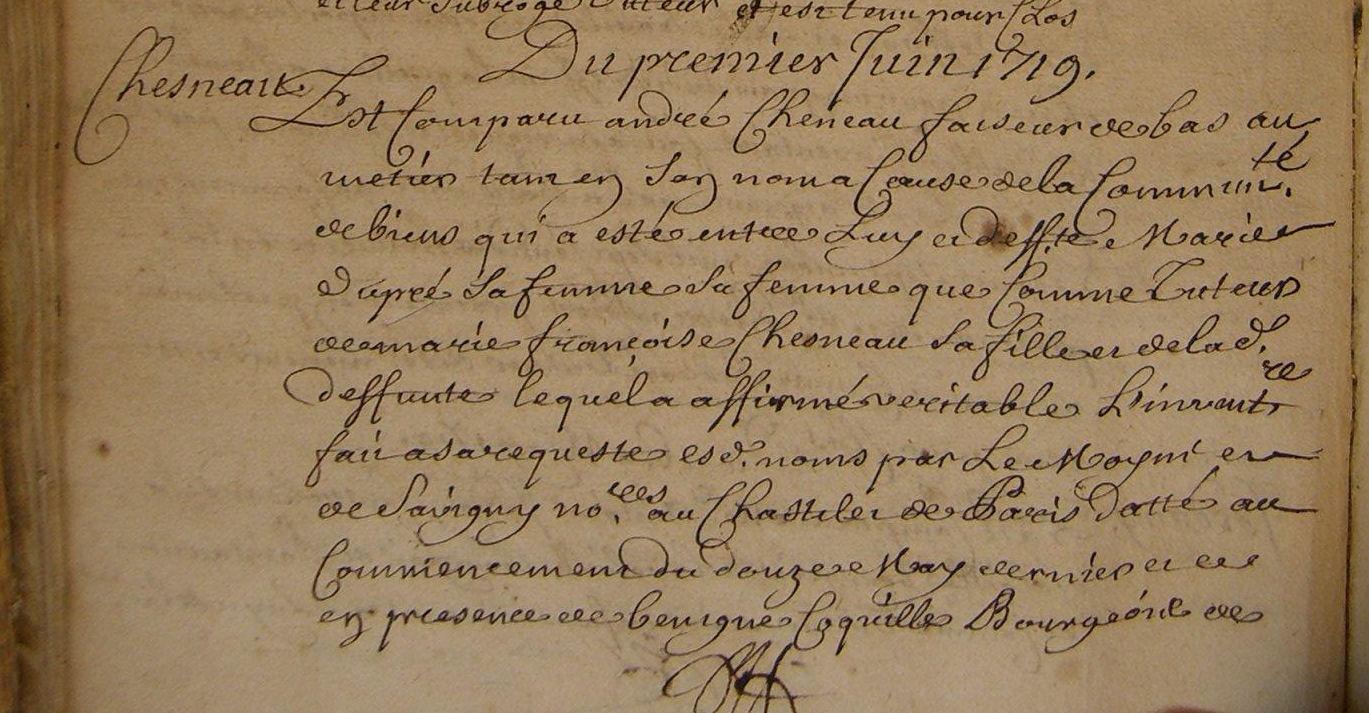 et leur subrogé tuteur et est tenu pour Clos
Du premier Juin 1719.
Chesneau.
Est Comparu andré Cheneau faiseur de bas au
metier tant en Son nom a Cause de la Commun.té
de biens qui a esté entre Luy et deff.te Marie
dupré Sa femme Sa femme que Comme Tuteur
de marie françoise Chesneau Sa fille et de lad.
deffunte lequel a affirmé veritable L'invent.re
fait a sa requeste esd. noms par Le Moyne et
de Savigny no.res au Chastelet de Paris datté au
Commencement du douze May dernier et ce
en presence de benigne Coquille Bourgeois de